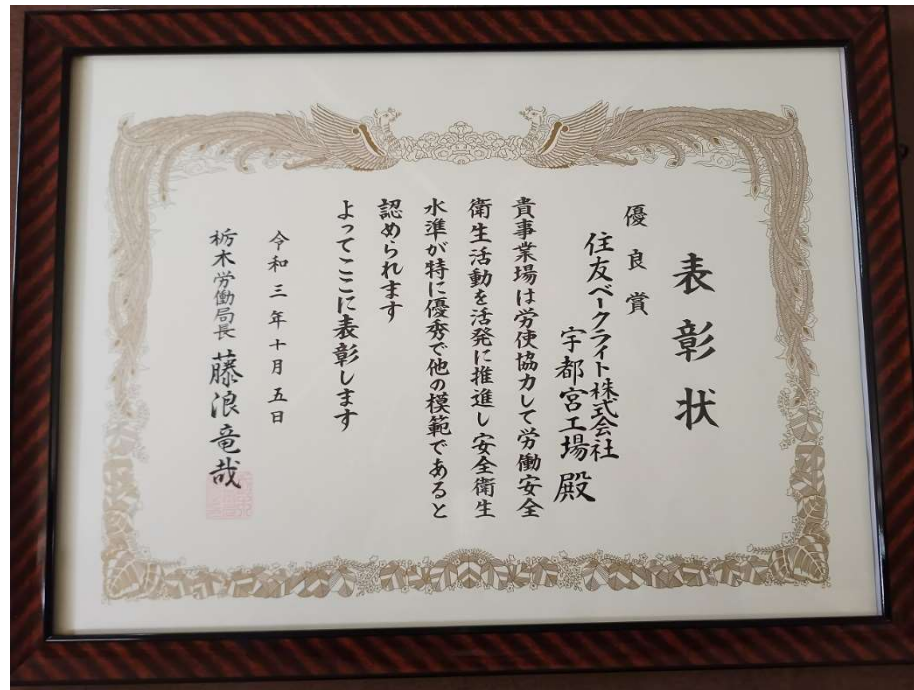 表彰状
優良賞
住友ベークライト株式会社
宇都宮工場殿
貴事業場は労使協力して労働安全
衛生活動を活発に推進し安全衛生
水準が特に優秀で他の模範であると
認められます
よってここに表彰します
令和三年十月五日
栃木労働局長 藤浪竜哉